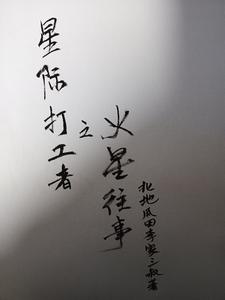 星际打工者
之
火星往事
北地瓜田李家三叔著